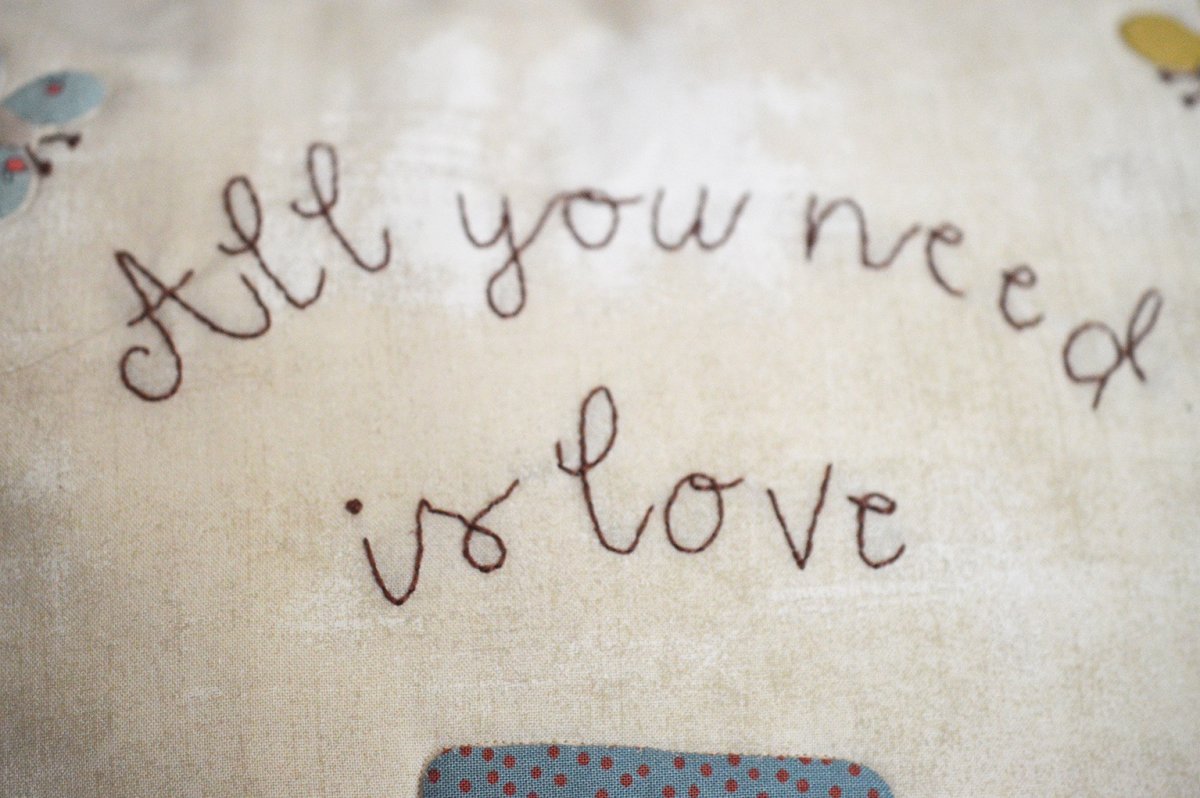 All you need
is love